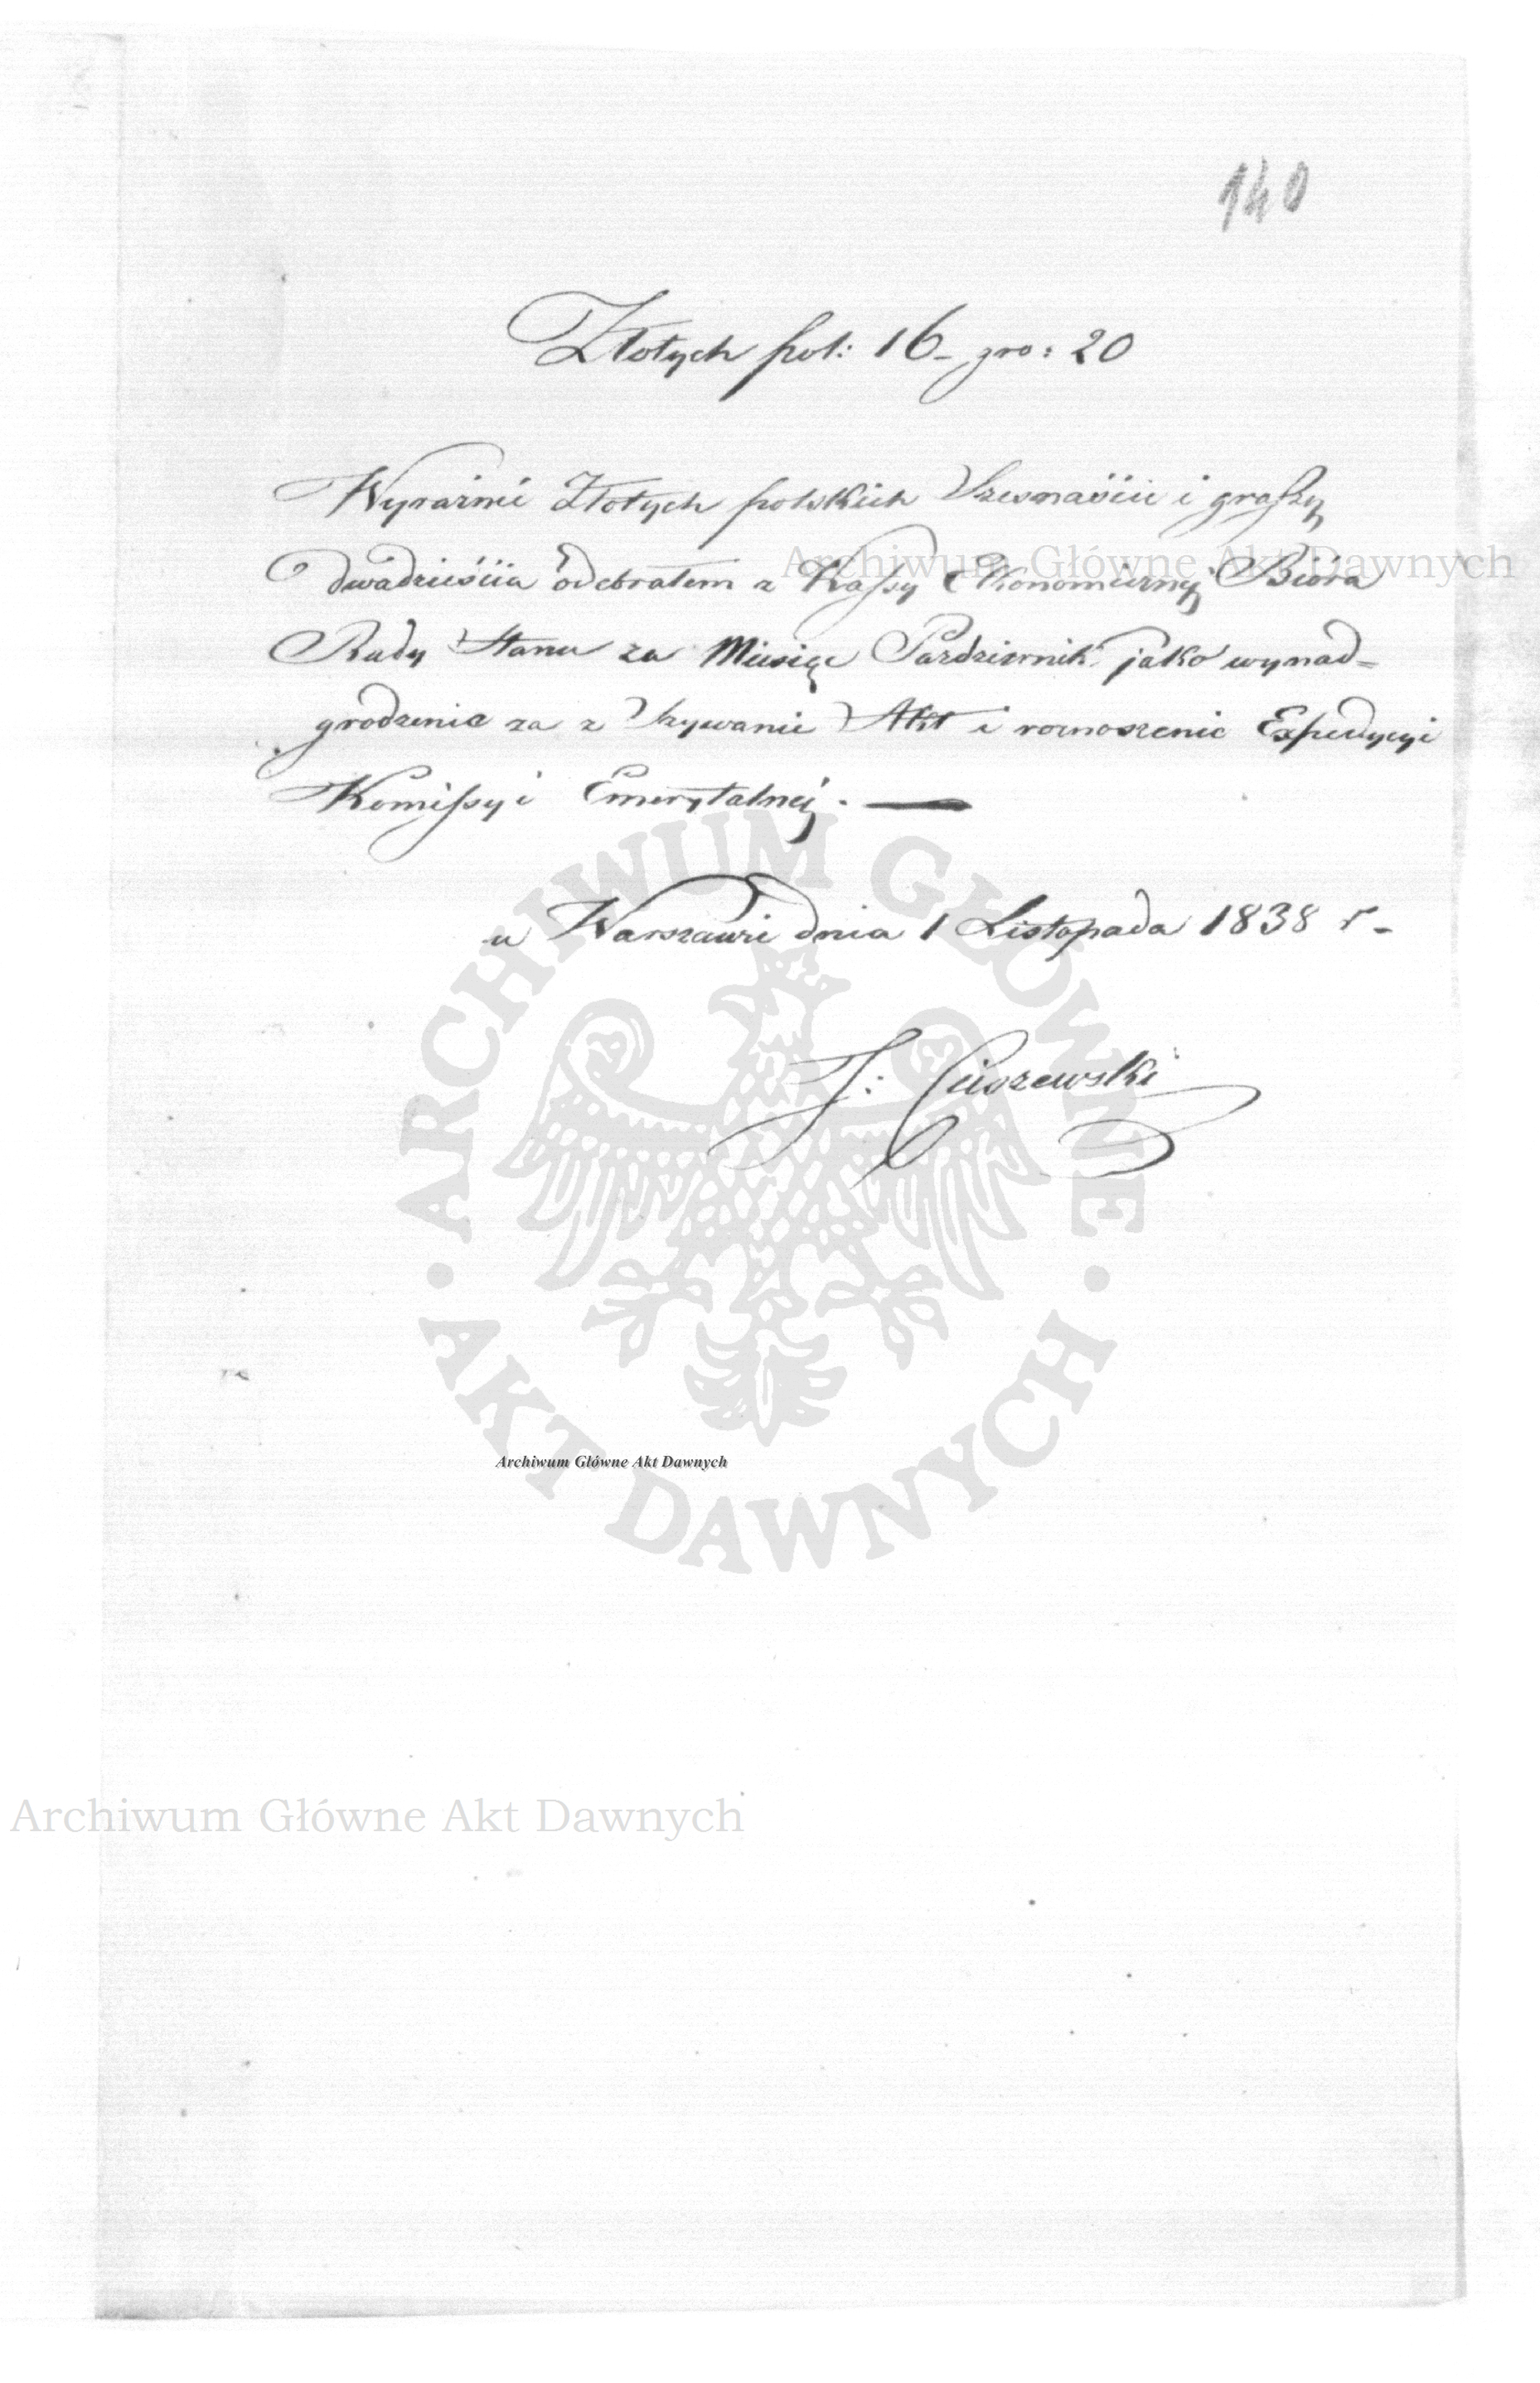 140
Złotych pol: 16 - gro: 20
Wyraźnie Złotych polskich Szesnaście i groszy
dwadzieścia odebrałem z Kassy Ekonomicznej Bióra
Archiwum Główne Akt Dawnych
Rady Stanu za Miesiąc Pazdziernik jako wynad=
grodzenie za z Szywanie Akt i roznoszenie Expedycyi
Komissyi Emerytalnej. —
w Warszawie dnia 1 Listopada 1838 r -
J: Ciuszewski
ARCHIWUM GŁÓWNE
AKT DAWNYCH
Archiwum Główne Akt Dawnych
Archiwum Główne Akt Dawnych